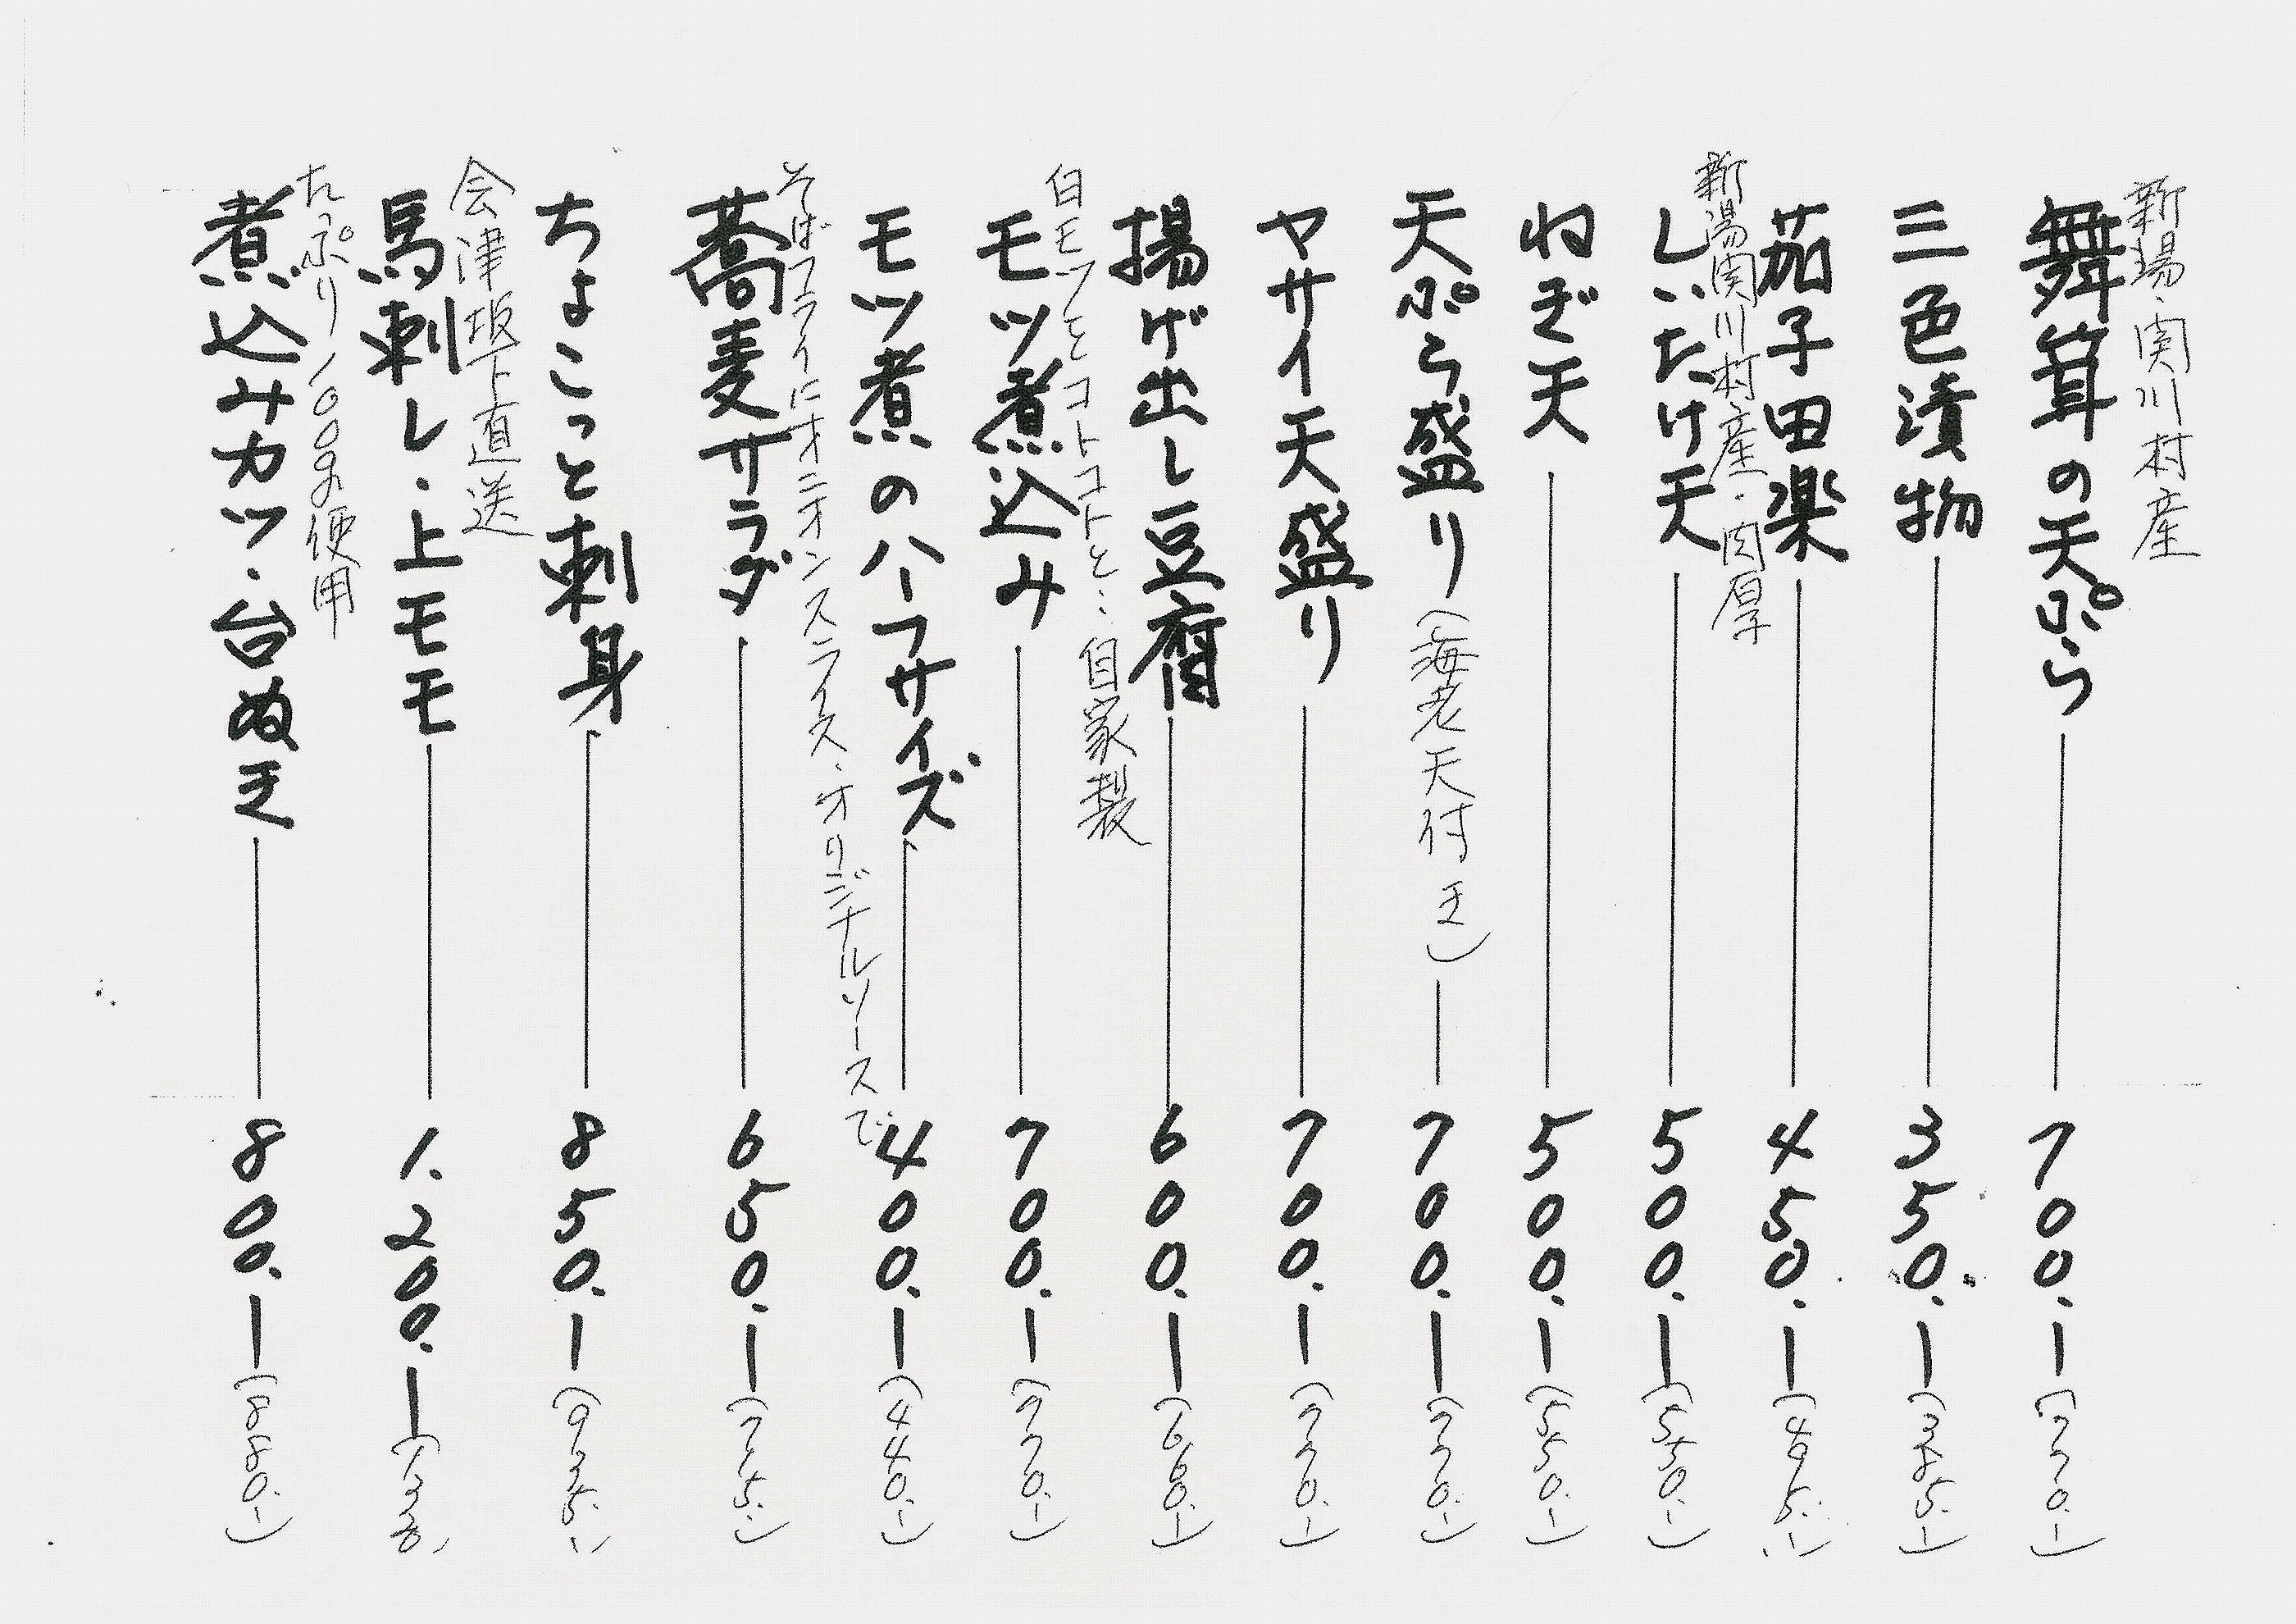 新潟・関川村産
舞茸の天ぷら 700.ー(770.ー)
三色漬物 350.ー(385.ー)
茄子田楽 450.ー(495.ー)
新潟関川村産・肉厚
しいたけ天 500.ー(550.ー)
ねぎ天 500.ー(550.ー)
天ぷら盛り(海老天付き) 700.ー(770.ー)
ヤサイ天盛り 700.ー(770.ー)
揚げ出し豆腐 600.ー(660.ー)
白モツをコトコトと、自家製
モツ煮込み 700.ー(770.ー)
モツ煮のハーフサイズ 400.ー(440.ー)
そばフライにオニオンスライス、オリジナルソースで
蕎麦サラダ 650.ー(715.ー)
ちょこっと刺身 850.ー(935.ー)
会津坂下直送
馬刺し・上モモ 1.200.ー(1320)
たっぷり100g使用
煮込みカツ・台ぬき 800.ー(880.ー)